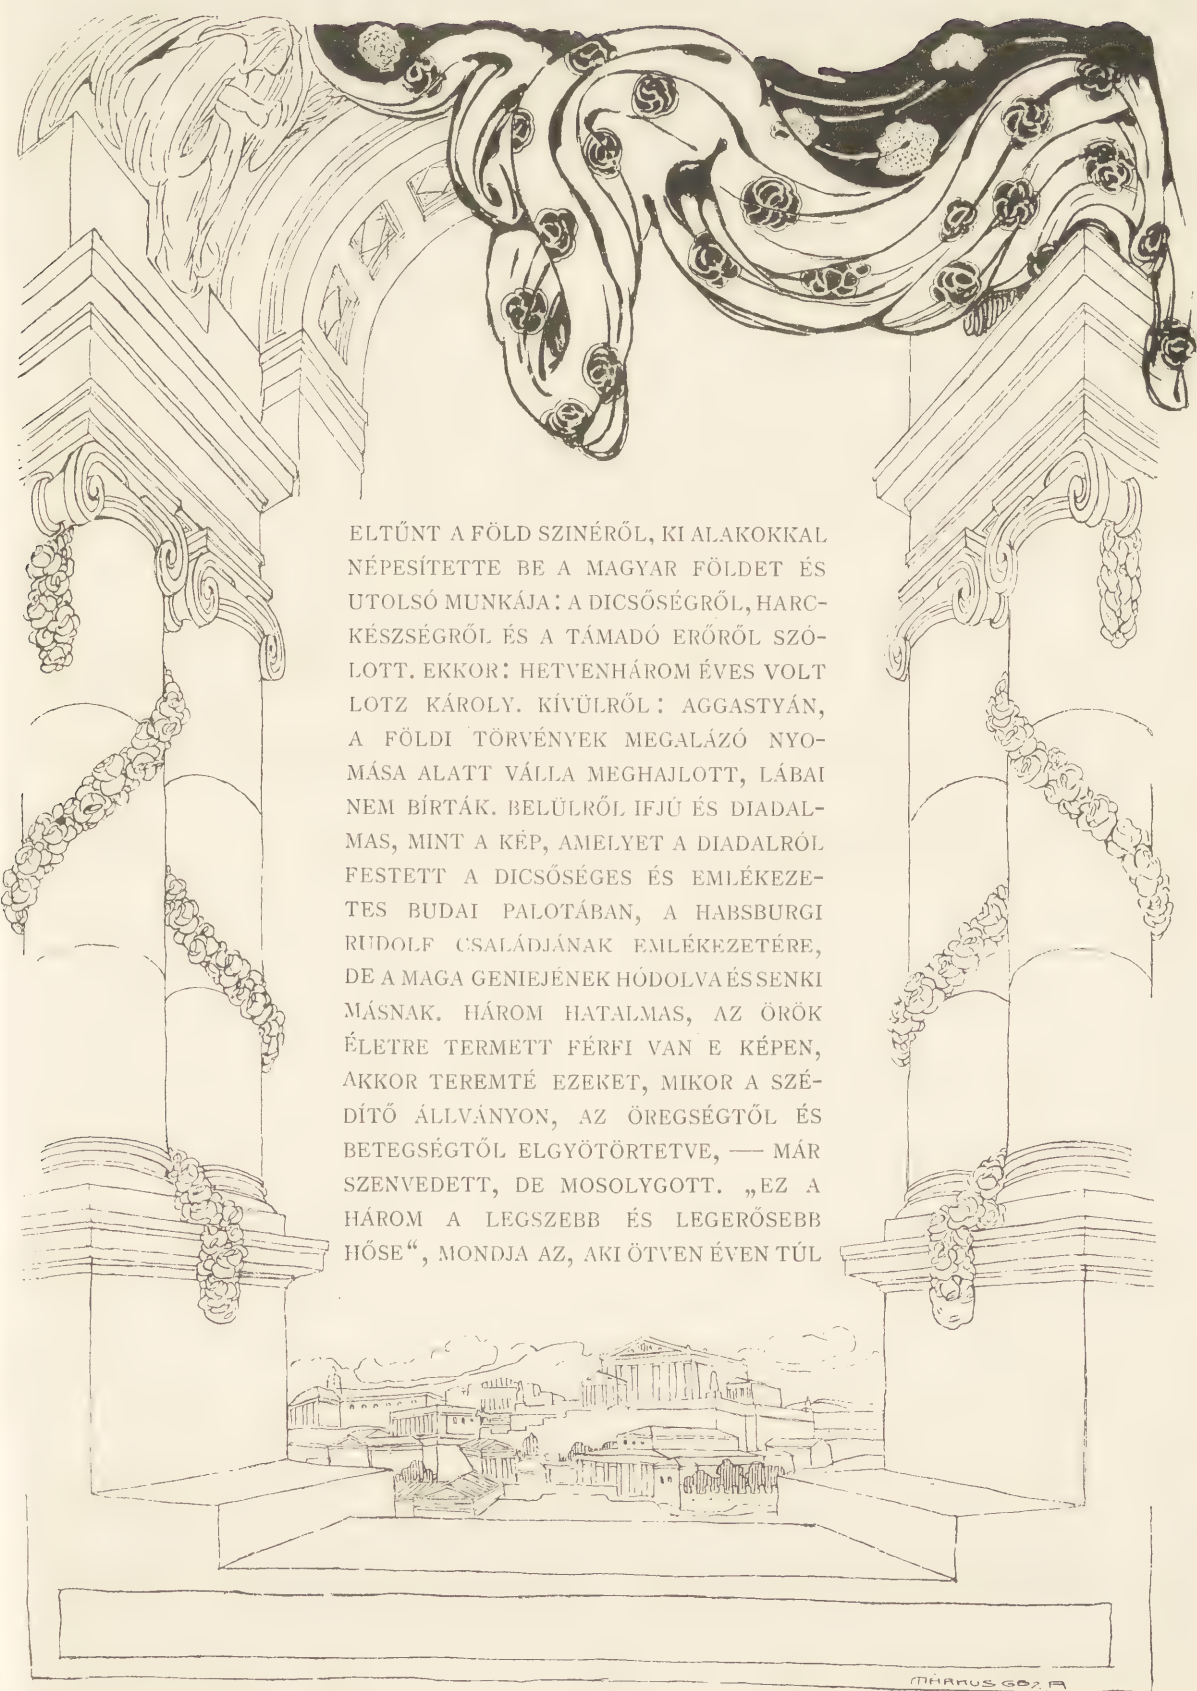 ELTŰNT A FÖLD SZINÉRŐL, KI ALAKOKKAL
NÉPESÍTETTE BE A MAGYAR FÖLDET ÉS
UTOLSÓ MUNKÁJA: A DICSŐSÉGRŐL, HARC-
KÉSZSÉGRŐL ÉS A TÁMADÓ ERŐRŐL SZÓ-
LOTT. EKKOR: HETVENHÁROM ÉVES VOLT
LOTZ KÁROLY. KÍVÜLRŐL: AGGASTYÁN,
A FÖLDI TÖRVÉNYEK MEGALÁZÓ NYO-
MÁSA ALATT VÁLLA MEGHAJLOTT, LÁBAI
NEM BÍRTÁK. BELÜLRŐL IFJÚ ÉS DIADAL-
MAS, MINT A KÉP, AMELYET A DIADALRÓL
FESTETT A DICSŐSÉGES ÉS EMLÉKEZE-
TES BUDAI PALOTÁBAN, A HABSBURGI
RUDOLF CSALÁDJÁNAK EMLÉKEZETÉRE,
DE A MAGA GENIEJÉNEK HÓDOLVA ÉS SENKI
MÁSNAK. HÁROM HATALMAS, AZ ÖRÖK
ÉLETRE TERMETT FÉRFI VAN E KÉPEN,
AKKOR TEREMTÉ EZEKET, MIKOR A SZÉ-
DÍTŐ ÁLLVÁNYON, AZ ÖREGSÉGTŐL ÉS
BETEGSÉGTŐL ELGYÖTÖRTETVE, — MÁR
SZENVEDETT, DE MOSOLYGOTT. „EZ A
HÁROM A LEGSZEBB ÉS LEGERŐSEBB
HŐSE“, MONDJA AZ, AKI ÖTVEN ÉVEN TÚL
MÁRKUS GÉZA